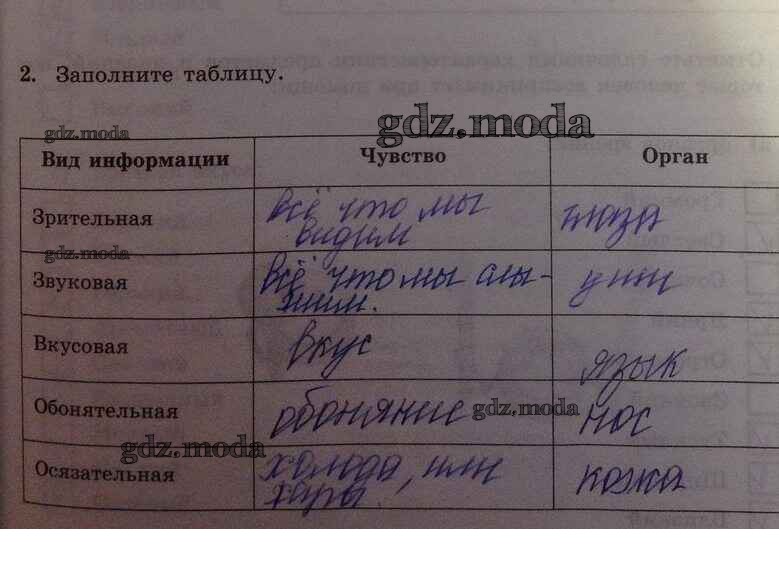 2. Заполните таблицу.
gdz.moda
gdz.moda
Вид информации Чувство Орган
Зрительная всё что мы видим глаза
gdz.moda
Звуковая всё что мы слы-
шим. уши
Вкусовая вкус язык
Обонятельная обоняние gdz.moda нос
gdz.moda
Осязательная холода, или
жары. кожа